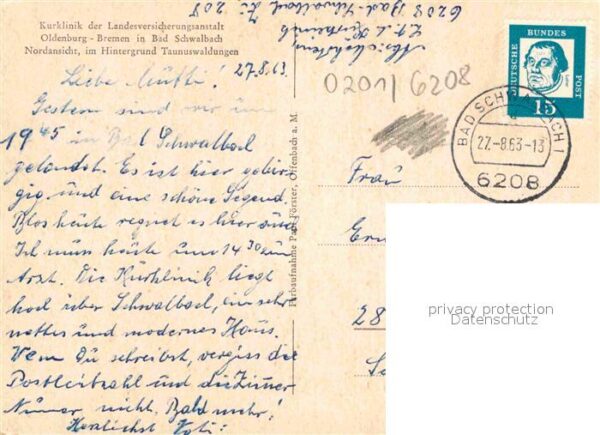 Kurklinik der Landesversicherungsanstalt
Oldenburg - Bremen in Bad Schwalbach
Nordansicht, im Hintergrund Taunuswaldungen
Liebe Mutti! 27.8.63
Gestern sind wir um
1945 in Bad Schwalbach
gelandet. Es ist hier gebir-
gig und eine schöne Gegend
Blos heute regnet es hier und
Ich muss heute um 14 30 zum
Arzt. Die Kurklinik liegt
hoch über Schwalbach, ein sehr
nettes und modernes Haus.
Wenn Du schreibst, vergiss die
Postleitzahl und die Zimmer
Numer nicht. Bald mehr!
Herzlichst
Farbaufnahme Paul Förster, Offenbach a. M.
z. Zt.
6208 Bad-Schwalbach Zi 208
0201/6208
DEUTSCHE BUNDES POST
15
BAD SCHWALBACH 1
27.-8.63-13
6208
Frau
28
privacy protection
Datenschutz